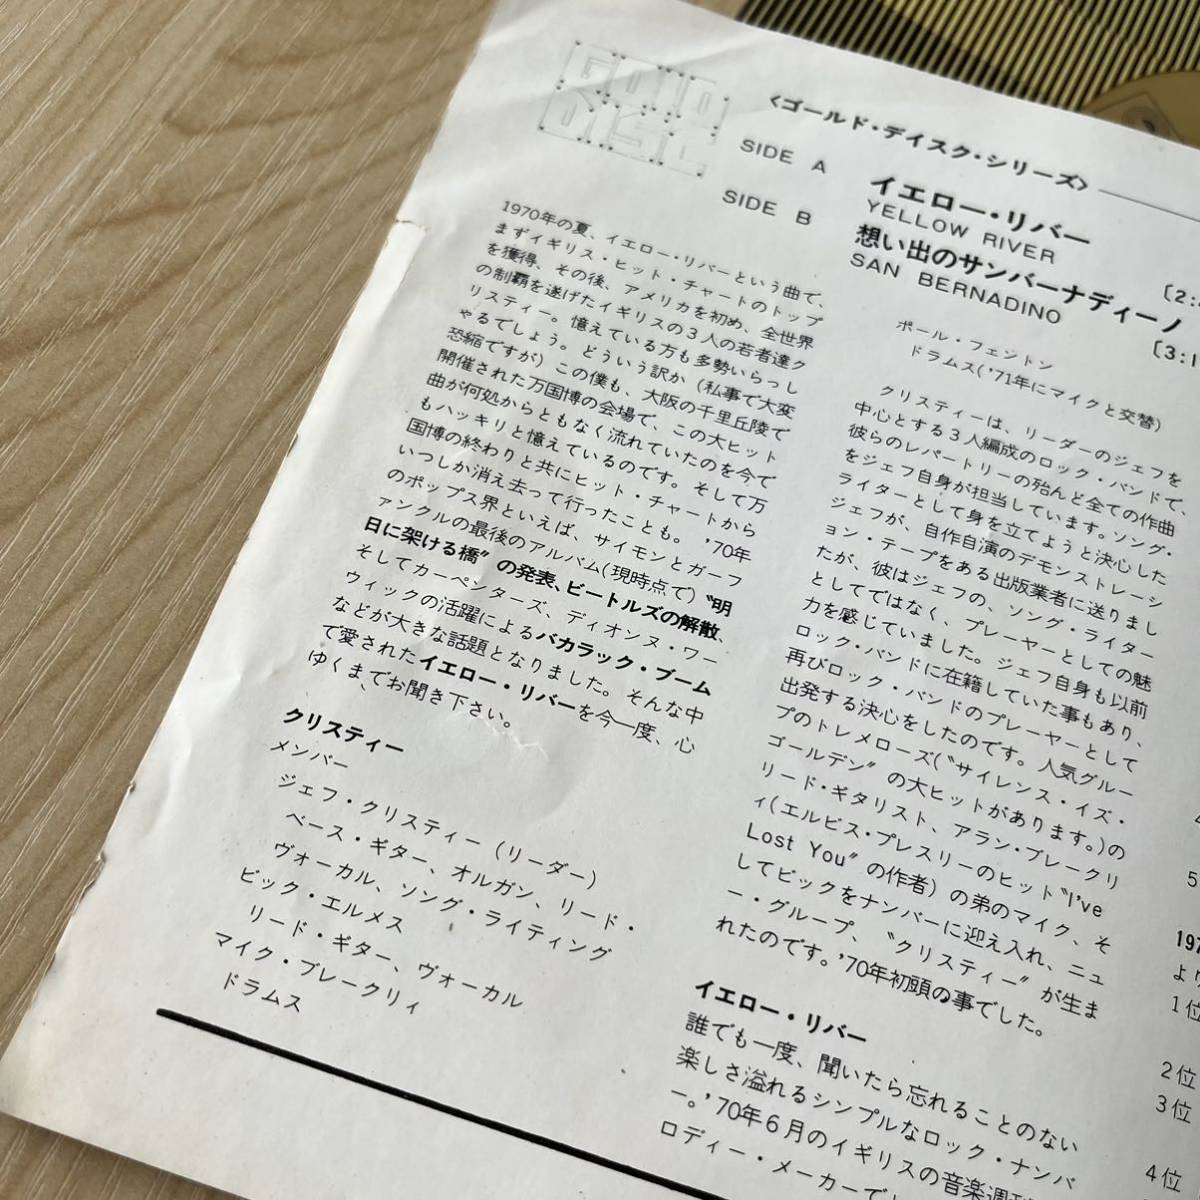 GOLD
DISC
〈ゴールド・デイスク・シリーズ〉
SIDE A
イエロー・リバー
YELLOW RIVER
SIDE B
想い出のサンバーナディーノ
SAN BERNADINO
〔2:
〔3:1
1970年の夏、イエロー・リバーという曲で、
まずイギリス・ヒット・チャートのトップ
を獲得、その後、アメリカを初め、全世界
の制覇を遂げたイギリスの3人の若者達ク
リスティー。憶えている方も多勢いらっし
ゃるでしょう。どういう訳か（私事で大変
恐縮ですが）この僕も、大阪の千里丘陵で
開催された万国博の会場で、この大ヒット
曲が何処からともなく流れていたのを今で
もハッキリと憶えているのです。そして万
国博の終わりと共にヒット・チャートから
いつしか消え去って行ったことも。'70年
のポップス界といえば、サイモンとガーフ
ァンクルの最後のアルバム(現時点で)〝明
日に架ける橋〟の発表、ビートルズの解散、
そしてカーペンターズ、ディオンヌ・ワー
ウィックの活躍によるバカラック・ブーム
などが大きな話題となりました。そんな中
で愛されたイエロー・リバーを今一度、心
ゆくまでお聞き下さい。
クリスティー
メンバー
ジェフ・クリスティー（リーダー）
ベース・ギター、オルガン、リード・
ヴォーカル、ソング・ライティング
ビック・エルメス
リード・ギター、ヴォーカル
マイク・ブレークリィ
ドラムス
ポール・フェントン
ドラムス('71年にマイクと交替)
クリスティーは、リーダーのジェフを
中心とする3人編成のロック・バンドで、
彼らのレパートリーの殆んど全ての作曲
をジェフ自身が担当しています。ソング・
ライターとして身を立てようと決心した
ジェフが、自作自演のデモンストレーシ
ョン・テープをある出版業者に送りまし
たが、彼はジェフの、ソング・ライター
としてではなく、プレーヤーとしての魅
力を感じていました。ジェフ自身も以前
ロック・バンドに在籍していた事もあり、
再びロック・バンドのプレーヤーとして
出発する決心をしたのです。人気グルー
プのトレメローズ(〝サイレンス・イズ・
ゴールデン〟の大ヒットがあります。)の
リード・ギタリスト、アラン・ブレークリ
ィ(エルビス・プレスリーのヒット〝I've
Lost You〟の作者）の弟のマイク、そ
してビックをナンバーに迎え入れ、ニュ
ー・グループ、〝クリスティー〟が生ま
れたのです。'70年初頭の事でした。
イエロー・リバー
誰でも一度、聞いたら忘れることのない
楽しさ溢れるシンプルなロック・ナンバ
ー。'70年6月のイギリスの音楽週
ロディー・メーカーで
4
5
197
より
1位
2位
3位
4位